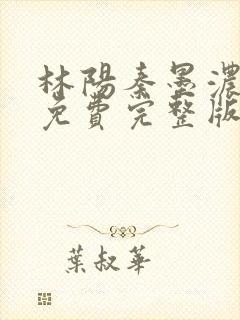 林陽秦墨濃
免費完整版
葉叔華